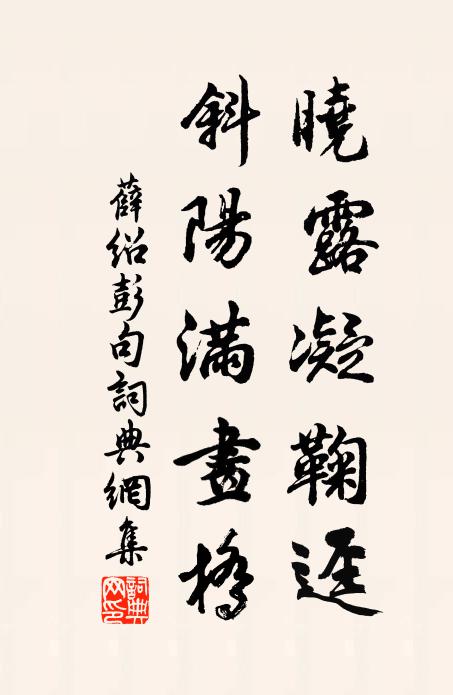 曉露凝鞠逕
斜陽滿畫橋
薛紹彭句詞典網集
詞典网印